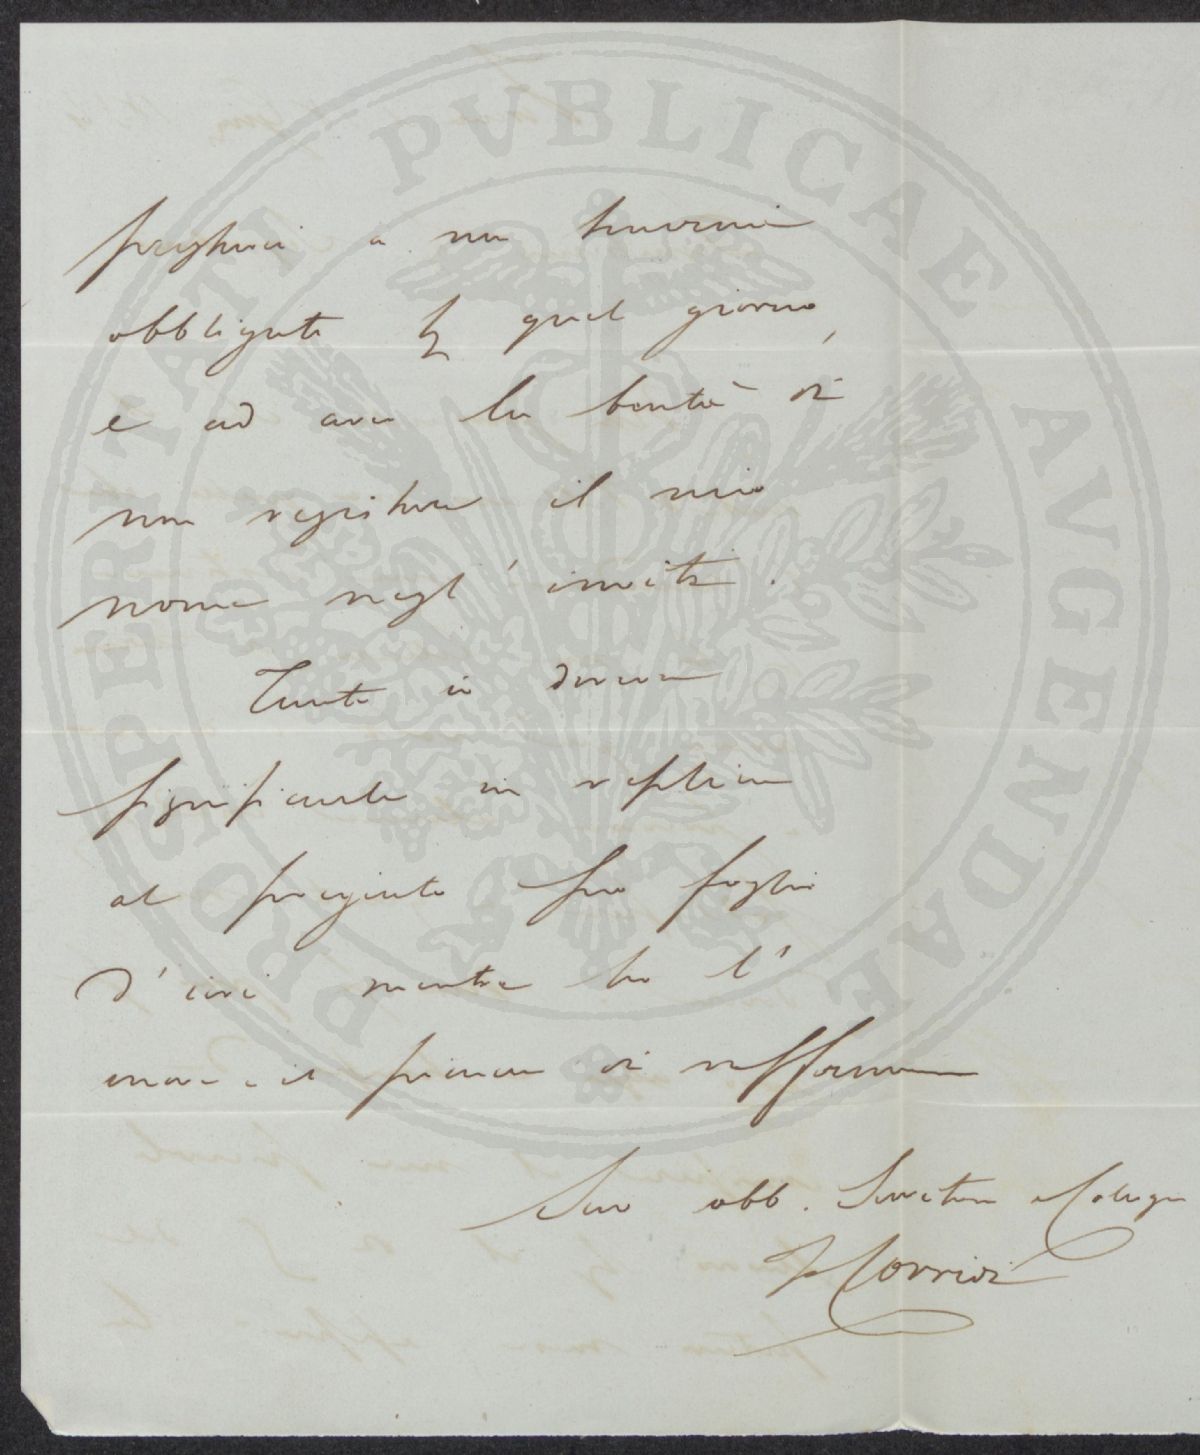 PROSPERITATI PVBLICAE AVGENDAE
pregherei a non tenermi
obbligato per quel giorno,
e ad aver la bontà di
non registrare il mio
nome negl' inviti.
Tanto io doveva
significarle in replica
al pregiato suo foglio
d'ieri mentre ho l'
onore, e il piacere di raffermarmi
Suo obb. Servitore e Collega
F Corridi